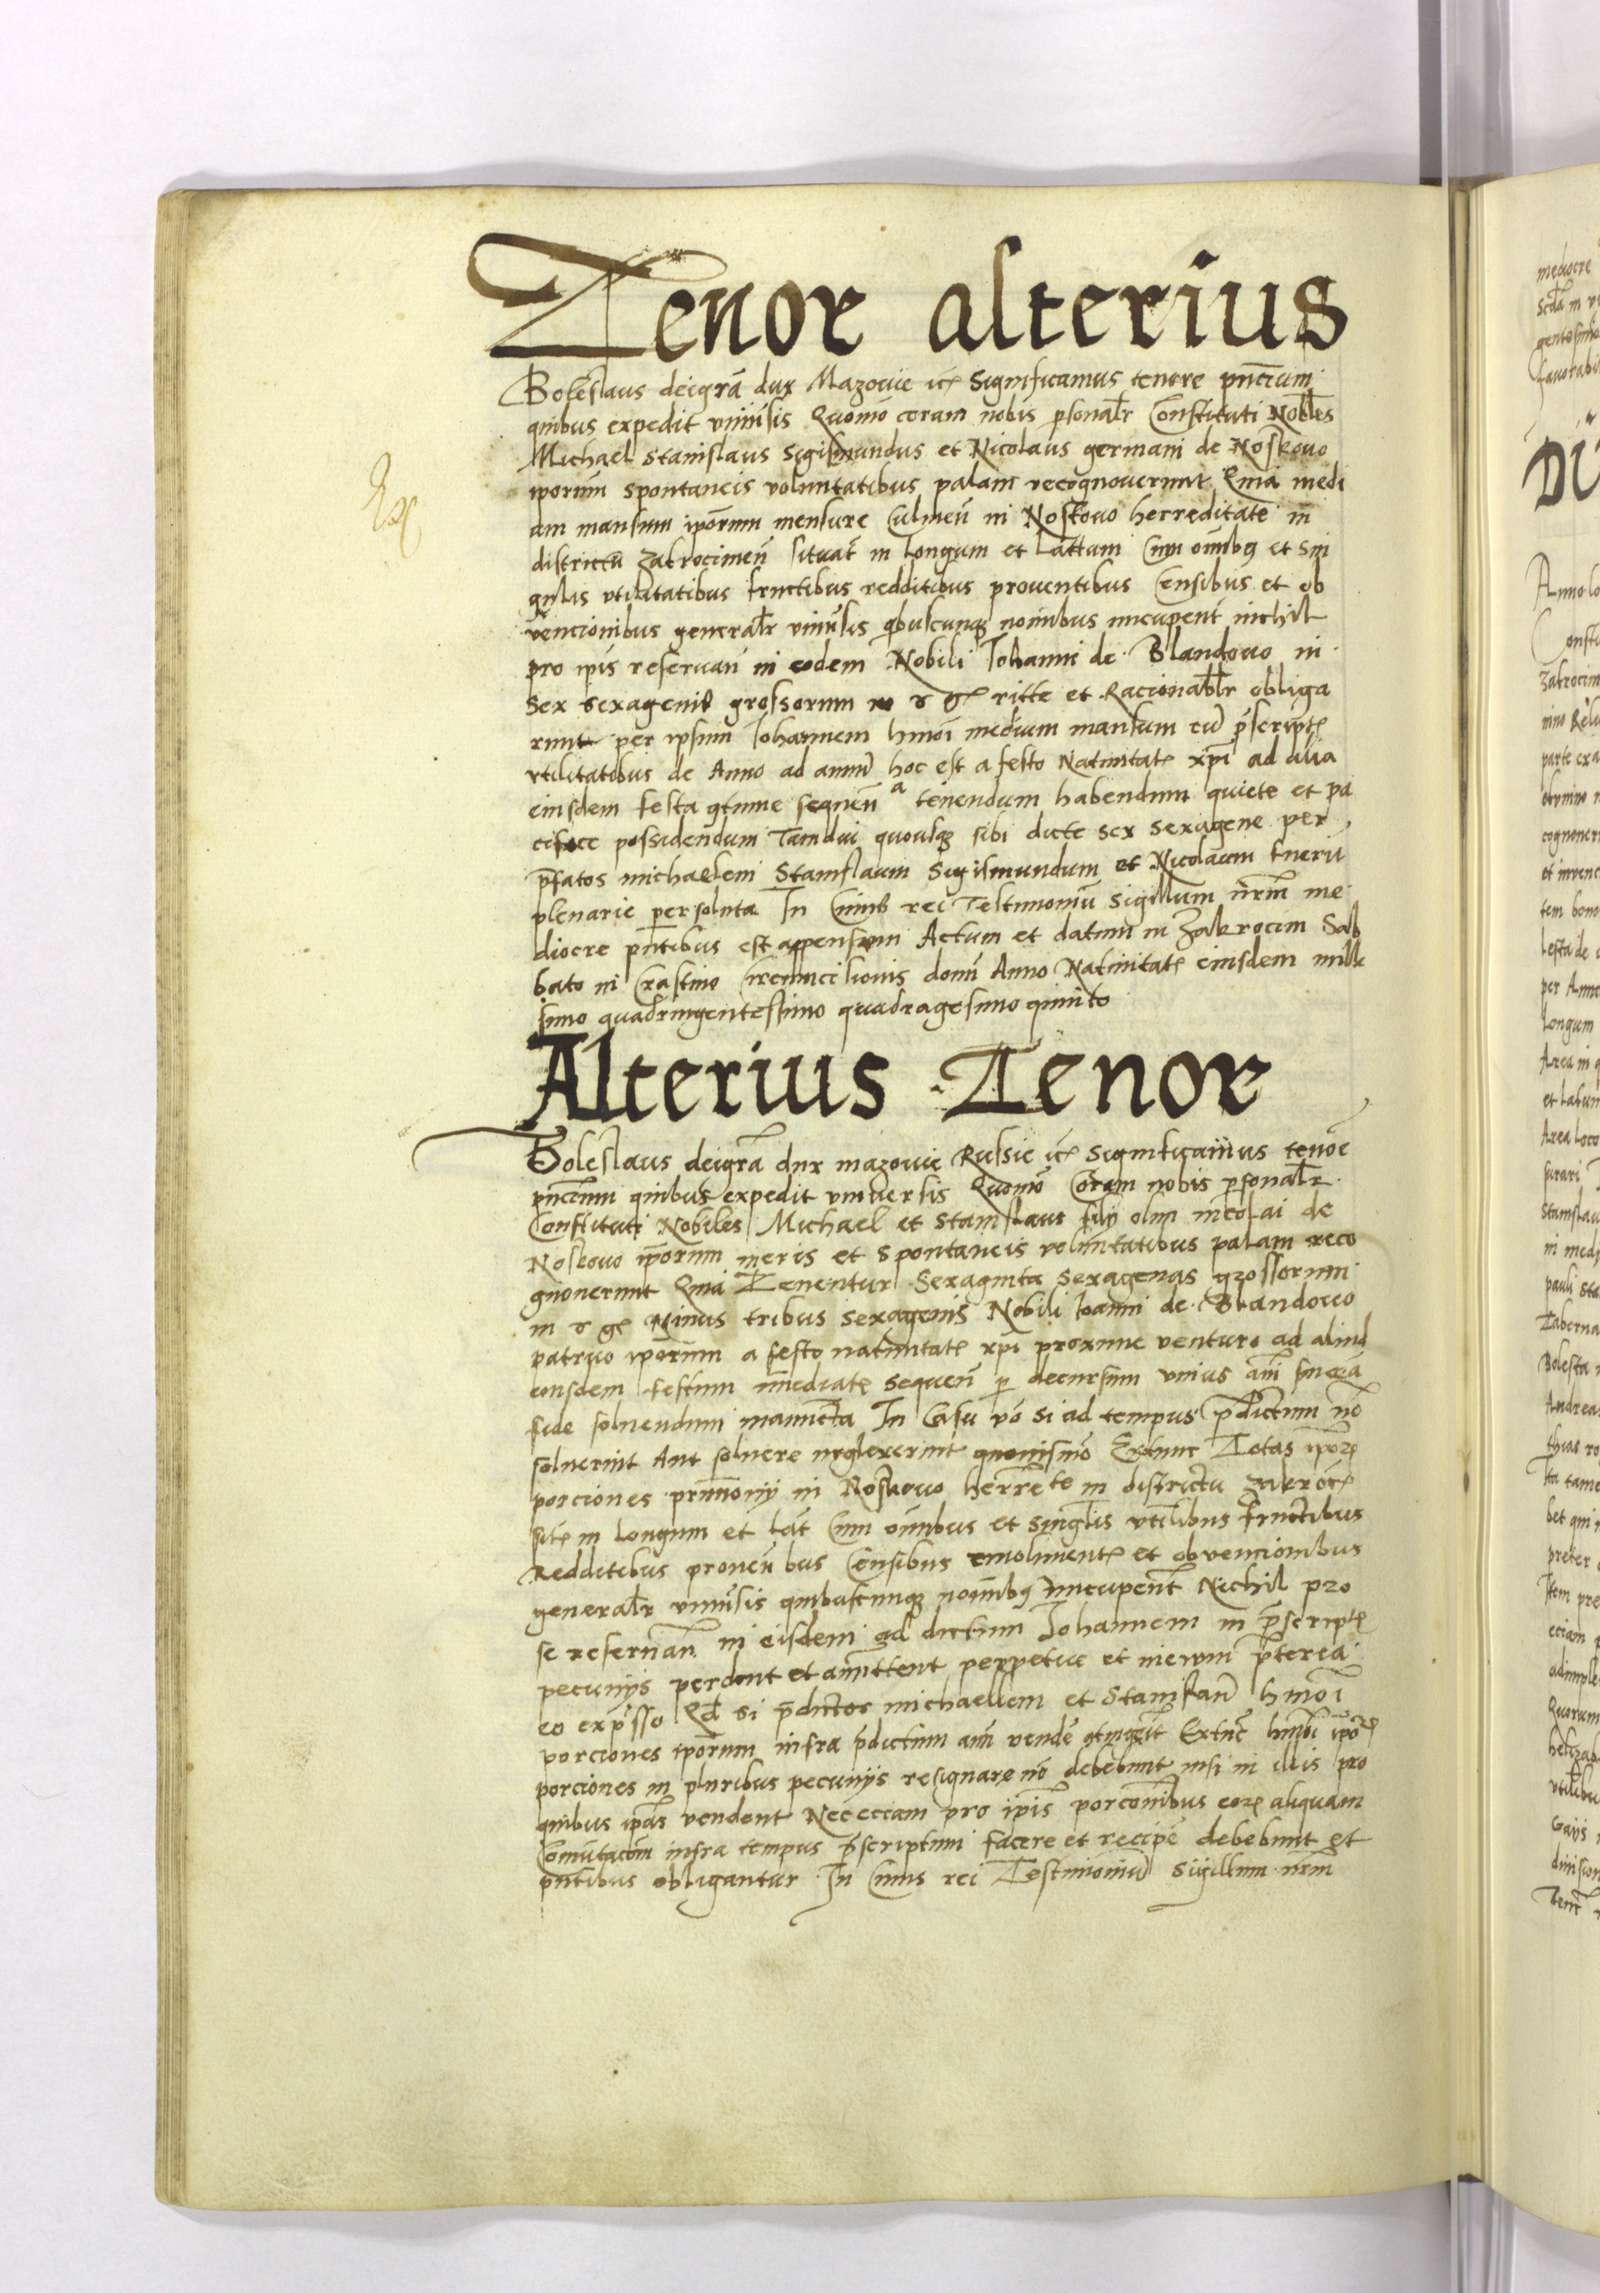 Tenor alterius
Boleslaus deigrã dux Mazouie ⁊c̃ Significamus tenore pñciũm
quibus expedit vniũsis Quomõ coram nobis p̱sonalr̃ Constituti Nobiles
Michael Stanislaus Sigismundus et Nicolaus germani de Noskouo
ip̃orum spontaneis voluntatibus palam recognouerunt Quia medi
am mansum ip̃orum mensure Culmeñ in Noskouo herreditate in
districtu Zakrocimeñ situat̃ in longum et Lattum Cum oĩmbꝫ et sin
gulis vtilitatibus fructibus redditibus prouentibus Censibus et ob
vencionibus generalr̃ vniũsis qibuscunqꝫ noĩnibus nũcupent̃ nichil
pro ip̃is reseruañ in eodem Nobili Johanni de Blandowo in
sex sexagenis grossorum m ⁊ gͤ ritte et Racionabilr̃ obliga
runt per ipsum Johannem hmõi medium mansum cũ p̃script̃
vtilitatibus de Anno ad annũ hoc est a festo Natiuitat̃ xp̃i ad alia
eiusdem festa 9tinue sequeñ a tenendum habendum quiete et pa
cifice possidendum Tamdiu quousqꝫ sibi dicte sex sexagene per
p̃fatos michaelem Stanislaum Sigismundum et Nicolaum fuerũ
plenarie persoluta In Cuius rei Testimoniũ Sigillum nr̃m me
diocre pñtibus est appensum Actum et datum in Zakrocim Sab
bato in Crastino Circumcisionis domĩ Anno Natiuitat̃ eiusdem mille
simo quadringentessimo quadragesimo quinto
Alterius Tenor
Boleslaus deigrã dux mazouie Russie ⁊c̃ Significamus tenoẽ
pñcium quibus expedit vniuersis Quomõ Coram nobis p̱sonalr̃
Constituti Nobiles Michael et Stanislaus filij olim nicolai de
Noskouo ip̃orum meris et Spontaneis voluntatibus palam reco
gnouerunt Quia Tenentur Sexaginta Sexagenas grossorum
m ⁊ gͤ Minus tribus sexagenis Nobili Ioanni de Blandowo
patruo ip̃orum a festo natiuitat̃ xp̃i proxime venturo ad aliud
eiusdem festum Immediate sequeñ p̱ decursum vnius añi sincera
fide soluendum In Casu vo si ad tempus p̃dictum nõ
soluerint Aut soluere neglexerint quouismõ Extunc Totas ip̃oꝝ
porciones primonij in Noskouo herrete in districtu Zakroc̃
sit̃ in longum et lat̃ Cum oĩnibus et singlis vtilibus fructibus
Redditibus proueñbus Censibus emoliment̃ et obvencionibus
generalr̃ vniũsis quibuscunqꝫ noĩnibꝫ nũcupent̃ Nichil pro
se reseruañ in eisdem ad dictum Johannem in p̃script̃
pecunijs perdent et amittent perpetue et in ewm p̃terea
eo exp̃sso Qd̃ si p̃dictos michaellem et Stanislaũ hmõi
porciones ip̃orum infra p̃dictum añ vendẽ 9tingerit Extũc hmõi ip̃oꝝ
porciones in pluribus pecunijs resignare nõ debebunt nisi in illis pro
quibus ip̃as vendent Nec eciam pro ip̃is porconibus eoꝝ aliquam
Comutacõm infra tempus p̃scriptum facere et recipẽ debebunt et
pñtibus obligantur In Cuius rei Testimoniũ Sigillum nr̃m